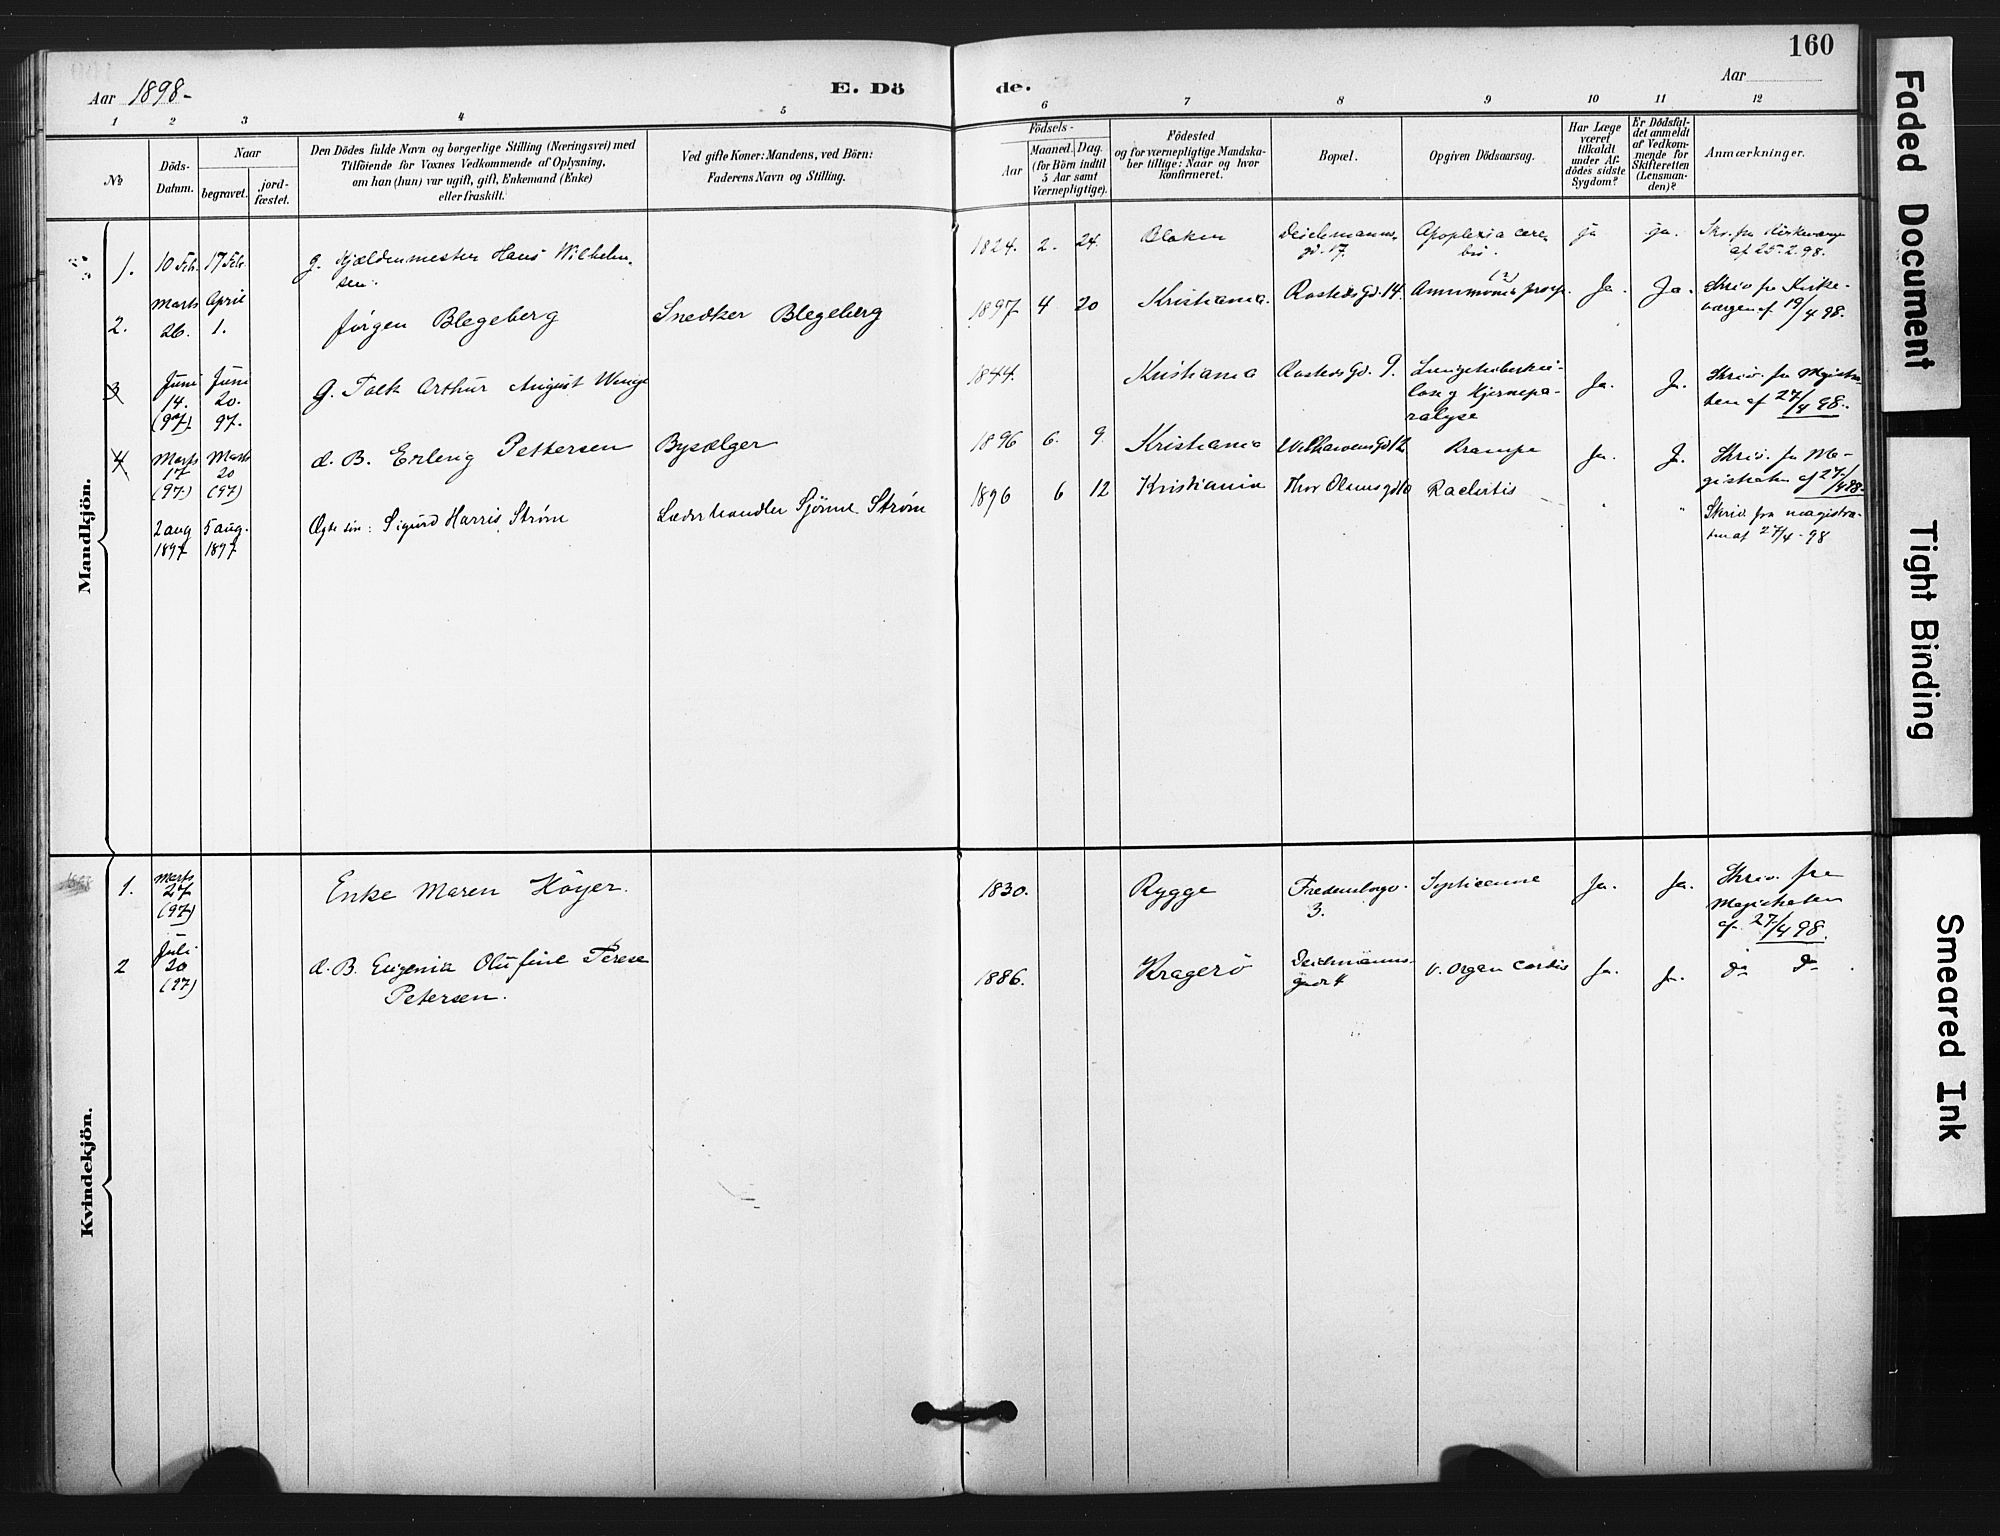 160
Aar 1898-
E. Dö
de.
Aar
1 2 3 4 5 6 7 8 9 10 11 12
No
Döds-
Datum.
Naar
begravet.
jord-
fæstet.
Den Dödes fulde Navn og borgerlige Stilling (Næringsvei) med
Tilföiende for Voxnes Vedkommende af Oplysning,
om han (hun) var ugift, gift, Enkemand (Enke)
eller fraskilt.
Ved gifte Koner: Mandens, ved Börn:
Faderens Navn og Stilling.
Födsels-
Aar
Maaned. Dag.
(for Börn indtil
5 Aar samt
Værnepligtige).
Födested
og for værnepligtige Mandska-
ber tillige: Naar og hvor
konfirmeret.
Bopæl.
Opgiven Dödsaarsag.
Har Læge
været
tilkaldt
under Af-
dödes sidste
Sygdom?
Er Dödsfal-
det anmeldt
af Vedkom-
mende for
Skifteretten
(Lensman-
den)?
Anmærkninger.
Mandkjön.
1. 10 Feb. 17 Feb.
g. Kjældermester Hans Wilhelm-
sen.
1824. 2. 24.
Deichmanns-
gd. 17.
Apoplexia cere-
bri.
ja ja.
af 25.2.98.
2.
Marts
26.
April
1.
Jørgen Blegeberg
Snedker Blegeberg
1897 4 20
Kristiania.
Rosteds Gd. 14.
Ja. Ja.
Skriv fra Kirke-
værgen af 19/4 98.
3
Juni
14.
(97)
Juni
20.
97.
g. Falk Arthur August Winge
1844.
Kristiania
Rosteds Gd. 9.
Lungetuberku-
lose g Hjernepa-
ralyse
Ja. Ja.
Skriv. fra Magistra-
ten af 27/4 98.
4
Marts
17
(97)
Marts
20
(97)
d. B. Erling Pettersen
Bysælger
1896 6. 9.
Kristiania
Krampe
Ja. Ja.
Skriv. fra Ma-
gistraten af 27/4 98.
2 aug
1897
5 aug.
1897
Ægte søn: Sigurd Harris Strøm
Læderhandler Sjönne Strøm
1896 6 12
Kristiania
Thor Olsens gd 10
Rachitis
Skriv fra magistra-
ten af 27/4-98
Kvindekjön.
1.
Marts
27
(97)
Enke Maren Höyer.
1830.
Rygge
Fredensborgv.
3.
Septicæmie
Ja. Ja.
Skriv. fra
Magistraten
af 27/4 98.
2
Juli
20
(97)
d. B. Eugenia Olufine Terese
Petersen.
1886.
Kragerö
Deichmanns-
gade 4
v. organ cordis
Ja. Ja.
do do.
Faded Document
Tight Binding
Smeared Ink